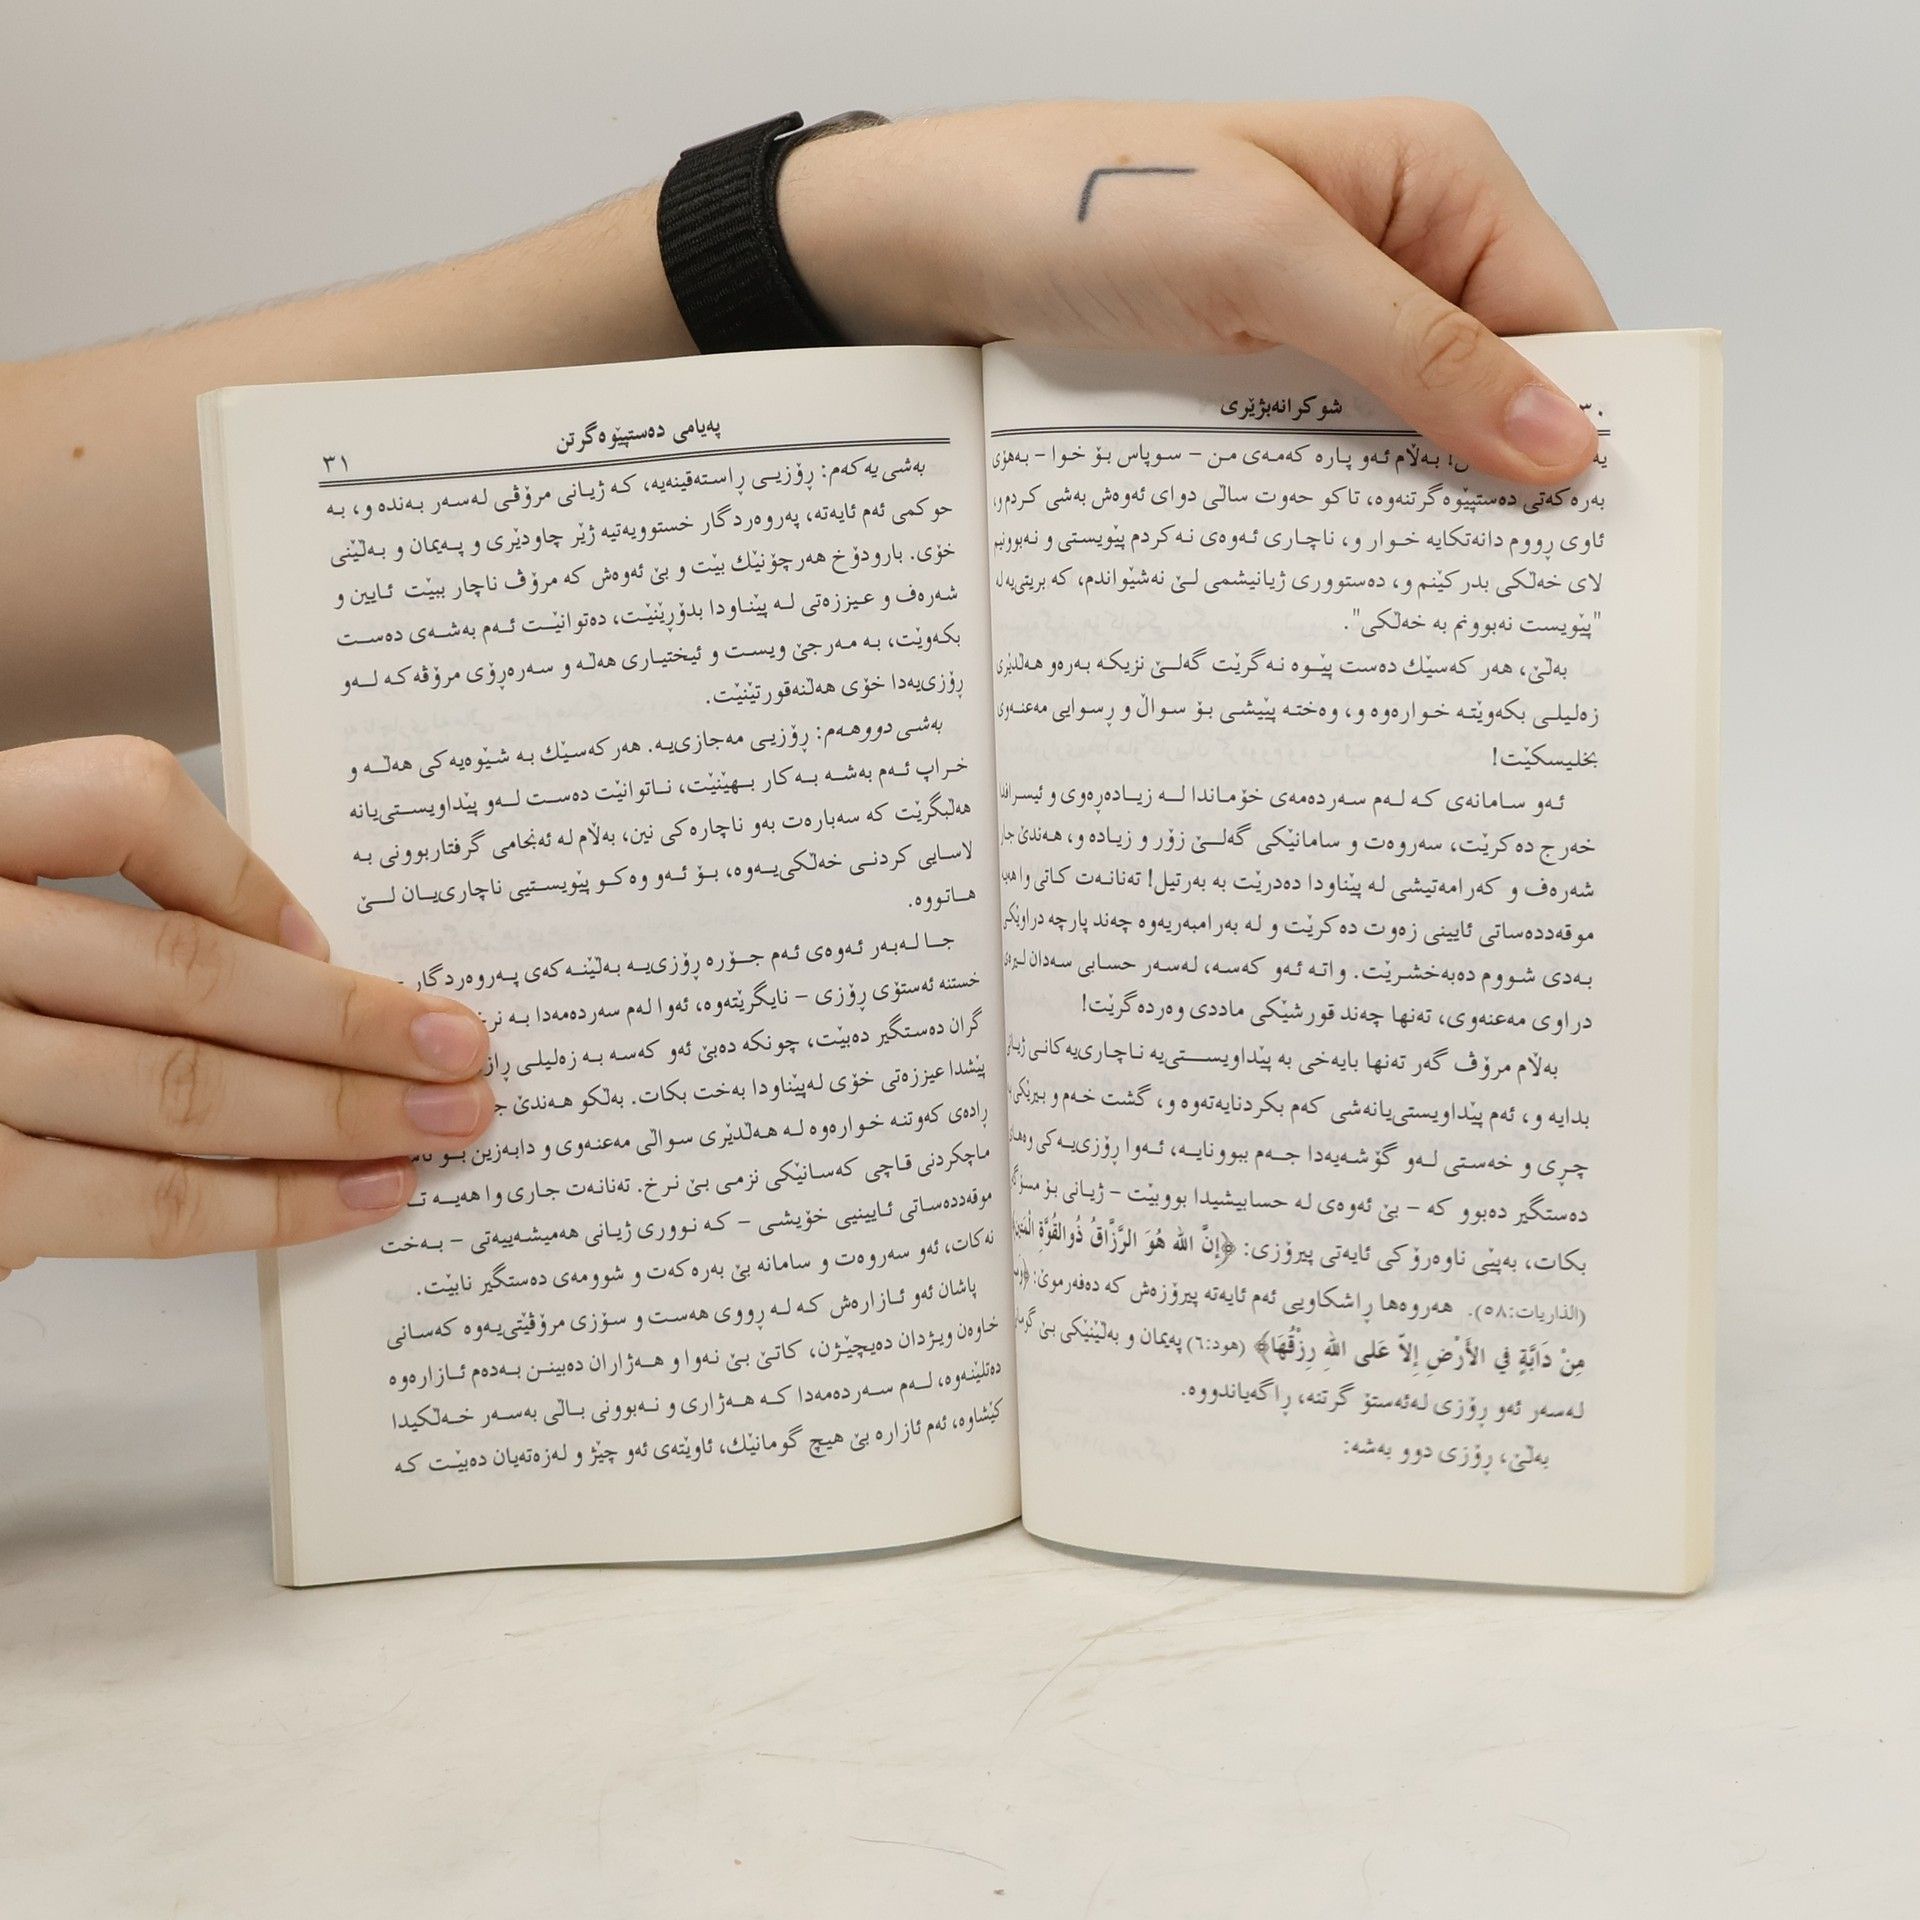 ٣٠ شوکرانەبژێری
بەڵام ئەو پارە کەمەی من – سوپاس بۆ خوا – بەهۆی
بەرەکەتی دەستپێوەگرتنەوە، تاکو حەوت ساڵی دوای ئەوەش بەشی کردم و،
ئاوی ڕووم دانەتکایە خوار و، ناچاری ئەوەی نەکردم پێویستی و نەبوونیم
لای خەڵکی بدرکێنم و، دەستووری ژیانیشمی لێ نەشێواندم، کە بریتی‌یە لە
"پێویست نەبوونم بە خەڵکی".
بەڵێ، هەر کەسێك دەست پێوە نەگرێت گەلێ نزیکە بەرەو هەڵدێری
زەلیلی بکەوێتە خوارەوە و، وەختە پێیشی بۆ سواڵ و ڕسوایی مەعنەوی
بخلیسکێت!
ئەو سامانەی کە لەم سەردەمەی خۆماندا لە زیادەڕەوی و ئیسرافدا
خەرج دەکرێت، سەروەت و سامانێکی گەلێ زۆر و زیادە و، هەندێ جار
شەرەف و کەرامەتیشی لە پێناودا دەدرێت بە بەرتیل! تەنانەت کاتی وا هەیە
موقەددەساتی ئایینی زەوت دەکرێت و لە بەرامبەریەوە چەند پارچە دراوێکی
بەدی شووم دەبەخشرێت. واتە ئەو کەسە، لەسەر حسابی سەدان لیرەی
دراوی مەعنەوی، تەنها چەند قورشێکی ماددی وەردەگرێت!
بەڵام مرۆڤ گەر تەنها بایەخی بە پێداویستی‌یە ناچاری‌یەکانی ژیانی
بدایە و، ئەم پێداویستی‌یانەشی کەم بکردنایەتەوە و، گشت خەم و بیرێکی
چڕی و خەستی لەو گۆشەیەدا جەم ببوونایە، ئەوا ڕۆزی‌یەکی وەهای
دەستگیر دەبوو کە – بێ ئەوەی لە حسابیشیدا بووبێت – ژیانی بۆ مسۆگەر
بکات، بەپێی ناوەرۆکی ئایەتی پیرۆزی: ﴿إنَّ الله هُوَ الرَّزَّاقُ ذُوالقُوَّةِ الْمَتِين﴾
(الذاریات:٥٨). هەروەها ڕاشکاویی ئەم ئایەتە پیرۆزەش کە دەفەرموێ:
مِنْ دَابَّةٍ فِي الأَرْضِ إِلاّ عَلَى اللهِ رِزْقُهَا﴾ (هود:٦) پەیمان و بەڵێنێکی بێ گومانی
لەسەر ئەو ڕۆزی لەئەستۆ گرتنە، ڕاگەیاندووە.
بەڵێ، ڕۆزی دوو بەشە:
پەیامی دەستپێوەگرتن ٣١
بەشی یەکەم: ڕۆزیی ڕاستەقینەیە، کە ژیانی مرۆڤی لەسەر بەندە و، بە
حوکمی ئەم ئایەتە، پەروەردگار خستوویەتیە ژێر چاودێری و پەیمان و بەڵێنی
خۆی. بارودۆخ هەرچۆنێك بێت و بێ ئەوەش کە مرۆڤ ناچار ببێت ئایین و
شەرەف و عیززەتی لە پێناودا بدۆڕێنێت، دەتوانێت ئەم بەشەی دەست
بکەوێت، بە مەرجێ ویست و ئیختیاری هەڵە و سەرەڕۆی مرۆڤەکە لەو
ڕۆزی‌یەدا خۆی هەڵنەقورتێنێت.
بەشی دووهەم: ڕۆزیی مەجازی‌یە. هەر کەسێك بە شێوەیەکی هەڵە و
خراپ ئەم بەشە بەکار بهێنێت، ناتوانێت دەست لەو پێداویستی‌یانە
هەڵبگرێت کە سەبارەت بەو ناچارەکی نین، بەڵام لە ئەنجامی گرفتاربوونی بە
لاسایی کردنی خەڵکی‌یەوە، بۆ ئەو وەکو پێویستیی ناچاری‌یان لێ
هاتووە.
جا لەبەر ئەوەی ئەم جۆرە ڕۆزی‌یە بەڵێنەکەی پەروەردگار –
خستنە ئەستۆی ڕۆزی – نایگرێتەوە، ئەوا لەم سەردەمەدا بە
گران دەستگیر دەبێت، چونکە دەبێ ئەو کەسە بە زەلیلی
پێشدا عیززەتی خۆی لەپێناودا بەخت بکات. بەڵکو هەندێ
ڕادەی کەوتنە خوارەوە لە هەڵدێری سواڵی مەعنەوی و دابەزین بۆ
ماچکردنی قاچی کەسانێکی نزمی بێ نرخ. تەنانەت جاری وا هەیە
موقەددەساتی ئایینیی خۆیشی – کە نووری ژیانی هەمیشەییەتی – بەخت
نەکات، ئەو سەروەت و سامانە بێ بەرەکەت و شوومەی دەستگیر نابێت.
پاشان ئەو ئازارەش کە لە ڕووی هەست و سۆزی مرۆڤێتی‌یەوە کەسانی
خاوەن ویژدان دەیچێژن، کاتێ بێ نەوا و هەژاران دەبینن بەدەم ئازارەوە
دەتلێنەوە، لەم سەردەمەدا کە هەژاری و نەبوونی باڵی بەسەر خەڵکیدا
کێشاوە، ئەم ئازارە بێ هیچ گومانێك، ئاوێتەی ئەو چێژ و لەزەتەیان دەبێت کە